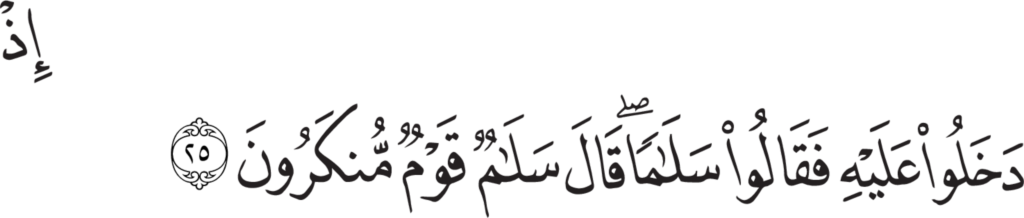 إِذْ
دَخَلُوا۟ عَلَيْهِ فَقَالُوا۟ سَلَـٰمًا ۖ قَالَ سَلَـٰمٌ قَوْمٌ مُّنكَرُونَ ٢٥